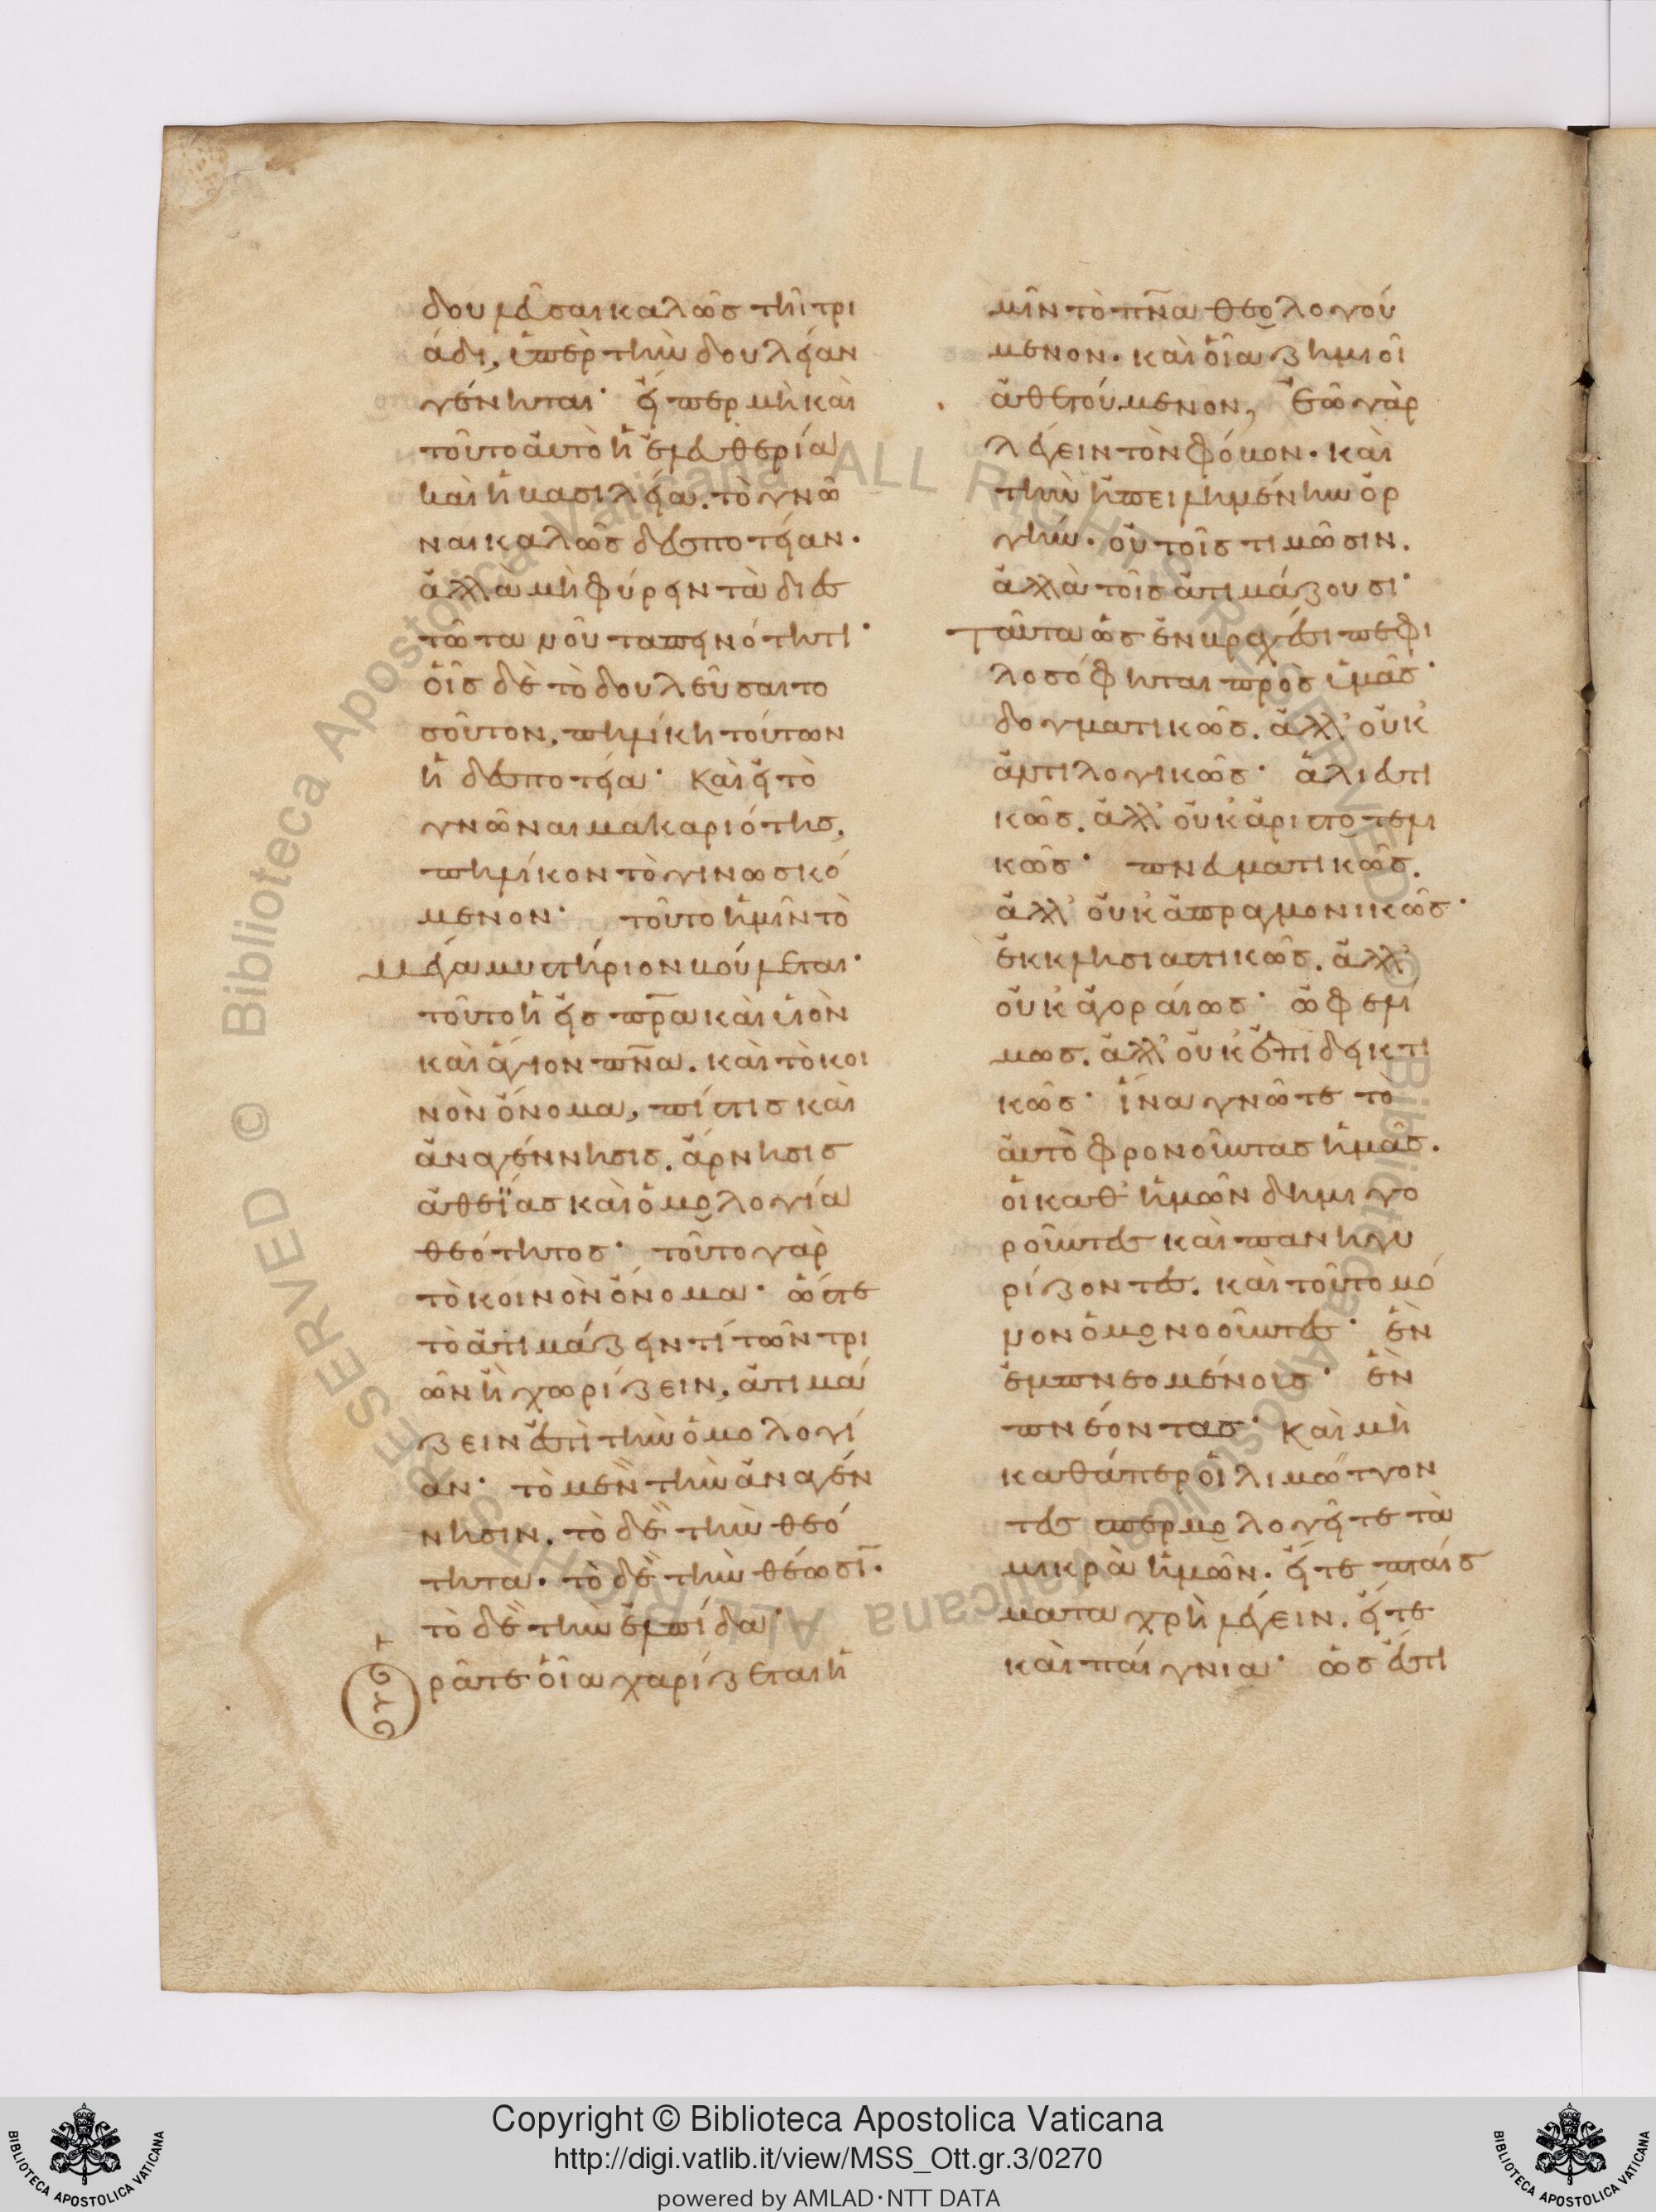 δουλεῦσαι καλῶς τῆ τρι
άδι, ὑπὲρ τὴν δουλείαν
γένηται· εἴπερ μὴ καὶ
τοῦτο ἀυτὸ ἡ ἐλευθερία
καὶ ἡ βασιλεία. τὸ γνῶ
ναι καλῶς δεσποτείαν.
ἀλλὰ μὴ φύρειν τὰ διεσ
τῶτα νοῦ ταπεινότητι·
οἷς δὲ τὸ δουλεῦσαι το
σοῦτον, πηλίκη τούτων
ἡ δεσποτεία· καὶ εἰ τὸ
γνῶναι μακαριότης,
πηλίκον τὸ γινωσκό
μενον· τοῦτο ἡμῖν τὸ
μέγα μυστήριον βούλεται·
τοῦτο ἡ εἰς π̅ρ̅α καὶ υἱὸν
καὶ ἅγιον π̅ν̅α. καὶ τὸ κοι
νὸν ὄνομα, πίστις καὶ
ἀναγέννησις. ἄρνησις
ἀθεΐας καὶ ὁμολογία
θεότητος· τοῦτο γὰρ
τὸ κοινὸν ὄνομα· ὥστε
τὸ ἀτιμάζειν τί τῶν τρι
ῶν ἢ χωρίζειν, ἀτιμά
ζειν ἐστὶ τὴν ὁμολογί
αν· τὸ μὲν τὴν ἀναγέν
νησιν. τὸ δὲ τὴν θεό
τητα. τὸ δὲ τὴν θέωσῑ.
τὸ δὲ τὴν ἐλπίδα·
ὁρᾶτε οἷα χαρίζεται ἡ
μῖν τὸ π̅ν̅α θεολογού
μενον. καὶ οἷα ζημιοῖ
ἀθετούμενον, ἐῶ γὰρ
λέγειν τὸν φόβον. καὶ
τὴν ἠπειλημένην ὀρ
γήν. οὐ τοῖς τιμῶσιν.
ἀλλὰ τοῖς ἀτιμάζουσι·
Ταῦτα ὡς ἐν βραχεῖ πεφι
λοσόφηται πρὸς ὑμᾶς·
δογματικῶς. ἀλλ' οὐκ
ἀντιλογικῶς· ἁλιευτι
κῶς. ἀλλ' οὐκ ἀριστοτελι
κῶς· πνευματικῶς.
ἀλλ' οὐκ ἀπραγμονικῶς·
ἐκκλησιαστικῶς. ἀλλ'
οὐκ ἀγοραίως· ὠφελί
μως. ἀλλ' οὐκ ἐπιδεικτι
κῶς· ἵνα γνῶτε τὸ
ἀυτὸ φρονοῦντας ἡμᾶς.
οἱ καθ' ἡμῶν δημηγο
ροῦντες καὶ πανηγυ
ρίζοντες. καὶ τοῦτο μό
νον ὁμονοοῦντες· ἑν
ἐμπνεομένοις· ἑν
πνέοντας· καὶ μὴ
καθάπερ οἱ λιμώττον
τες σπερμολογεῖτε τὰ
μικρὰ ἡμῶν. εἴτε πταίσ
ματα χρὴ λέγειν. εἴτε
καὶ παίγνια· ὡς ἐστι
Biblioteca Apostolica Vaticana ALL RIGHTS RESERVED ©
Copyright © Biblioteca Apostolica Vaticana
http://digi.vatlib.it/view/MSS_Ott.gr.3/0270
powered by AMLAD·NTT DATA
BIBLIOTECA APOSTOLICA VATICANA
BIBLIOTECA APOSTOLICA VATICANA